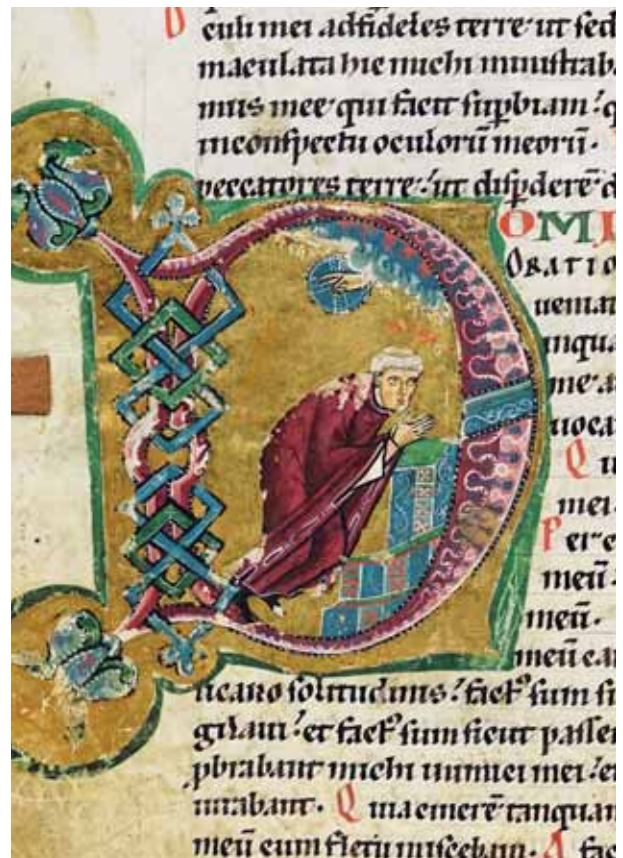 culi mei adfideles terre· ut sed
maculata hic michi ministrab
mus mee· qui facit suꝑbiam· q
inconspectu oculorū meorū·
peccatores terre· ut disꝑderē d
D OMI
ORATIO
ueniat
inqua
me· a
uoca
Q u
mei·
P er e
meū·
meū·
meū ca
licano solitudinis· factꝰ sum si
gilaui· et factꝰ sum sicut passer
pbrabant michi inimici mei· et
iurabant· Q uia cinerē tanquam
meū cum fletu miscebam· A fac